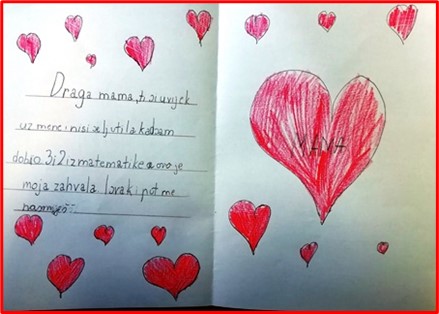 Draga mama, ti si uvijek
uz mene i nisi se ljutila kad sam
dobio 3 i 2 iz matematike a ovo je
moja zahvala. I svaki put me
nasmiješ